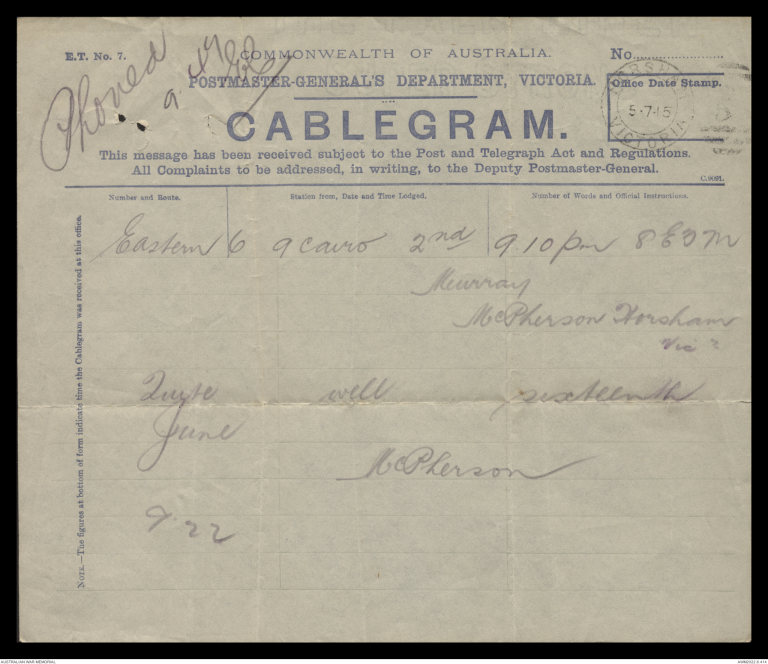 E.T. No. 7.
COMMONWEALTH OF AUSTRALIA.
No.
Phoned
POSTMASTER-GENERAL'S DEPARTMENT, VICTORIA.
Office Date Stamp.
5·7·15
VICTORIA
CABLEGRAM.
This message has been received subject to the Post and Telegraph Act and Regulations.
All Complaints to be addressed, in writing, to the Deputy Postmaster-General.
C.9091.
Number and Route.
Station from, Date and Time Lodged.
Number of Words and Official Instructions.
Eastern 6 a cairo 2nd 9.10 pm 8 E
Murray
McPherson Horsham
Vic
Quite well sixteenth
June
McPherson
9.22
NOTE.—The figures at bottom of form indicate time the Cablegram was received at this office.
AUSTRALIAN WAR MEMORIAL